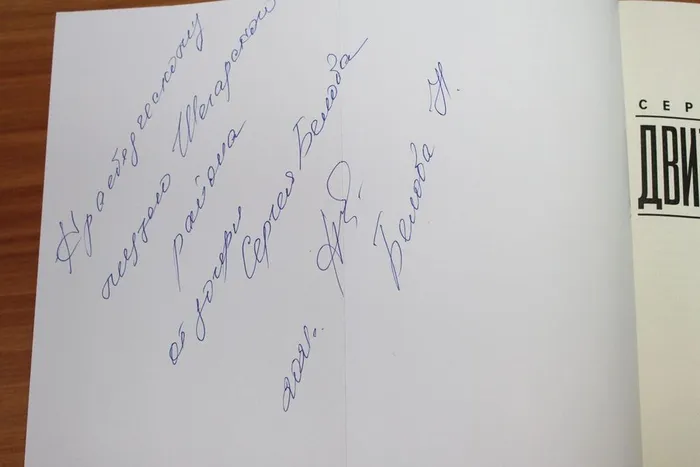 Краеведческому
музею Шегарского
района
от дочери
Сергея Белова
Белова Н.
СЕР
ДВИ